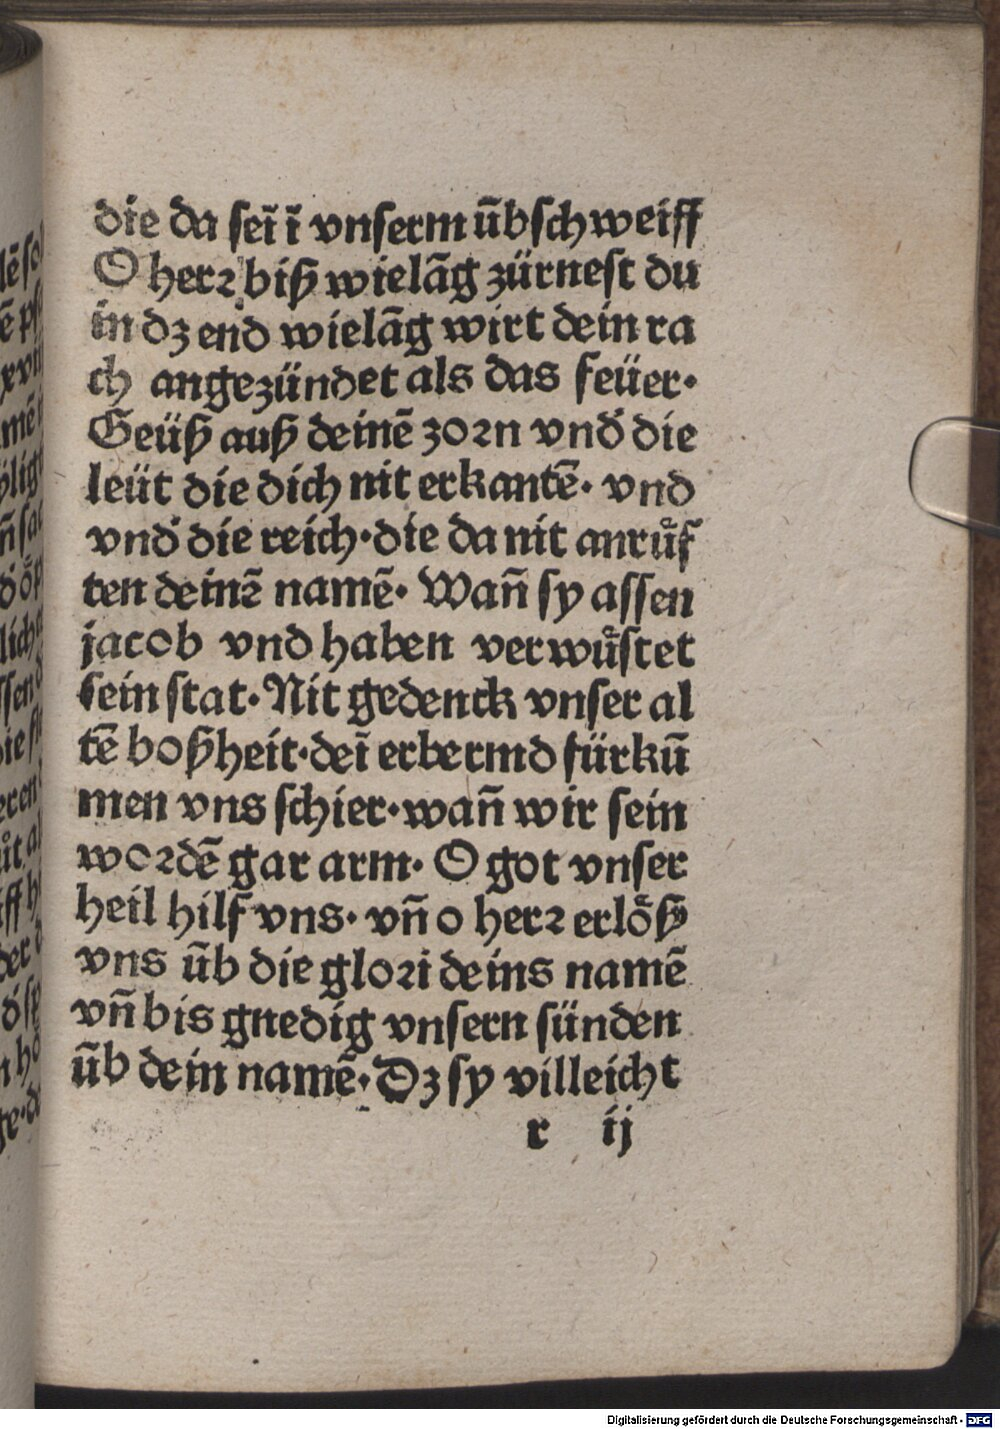 die da seī ī vnserm ūbschweiff
O herr biß wielāg zürnest du
in dz end wielāg wirt dein ra
ch angezündet als das feüer·
Geüß auß deinē zorn vnd̕ die
leüt die dich nit erkantē· vnd
vnd̕ die reich·die da nit anrůf
ten deinē namē· Wañ sy assen
jacob vnd haben verwůstet
sein stat· Nit gedenck vnser al
tē boßheit·deī erbermd fürkū
men vns schier·wañ wir sein
wordē gar arm· O got vnser
heil hilf vns· vñ o herr erlöß
vns ūb die glori deins namē
vñ bis gnedig vnsern sünden
ūb dein namē· Dz sy villeicht
r ij
Digitalisierung gefördert durch die Deutsche Forschungsgemeinschaft - DFG